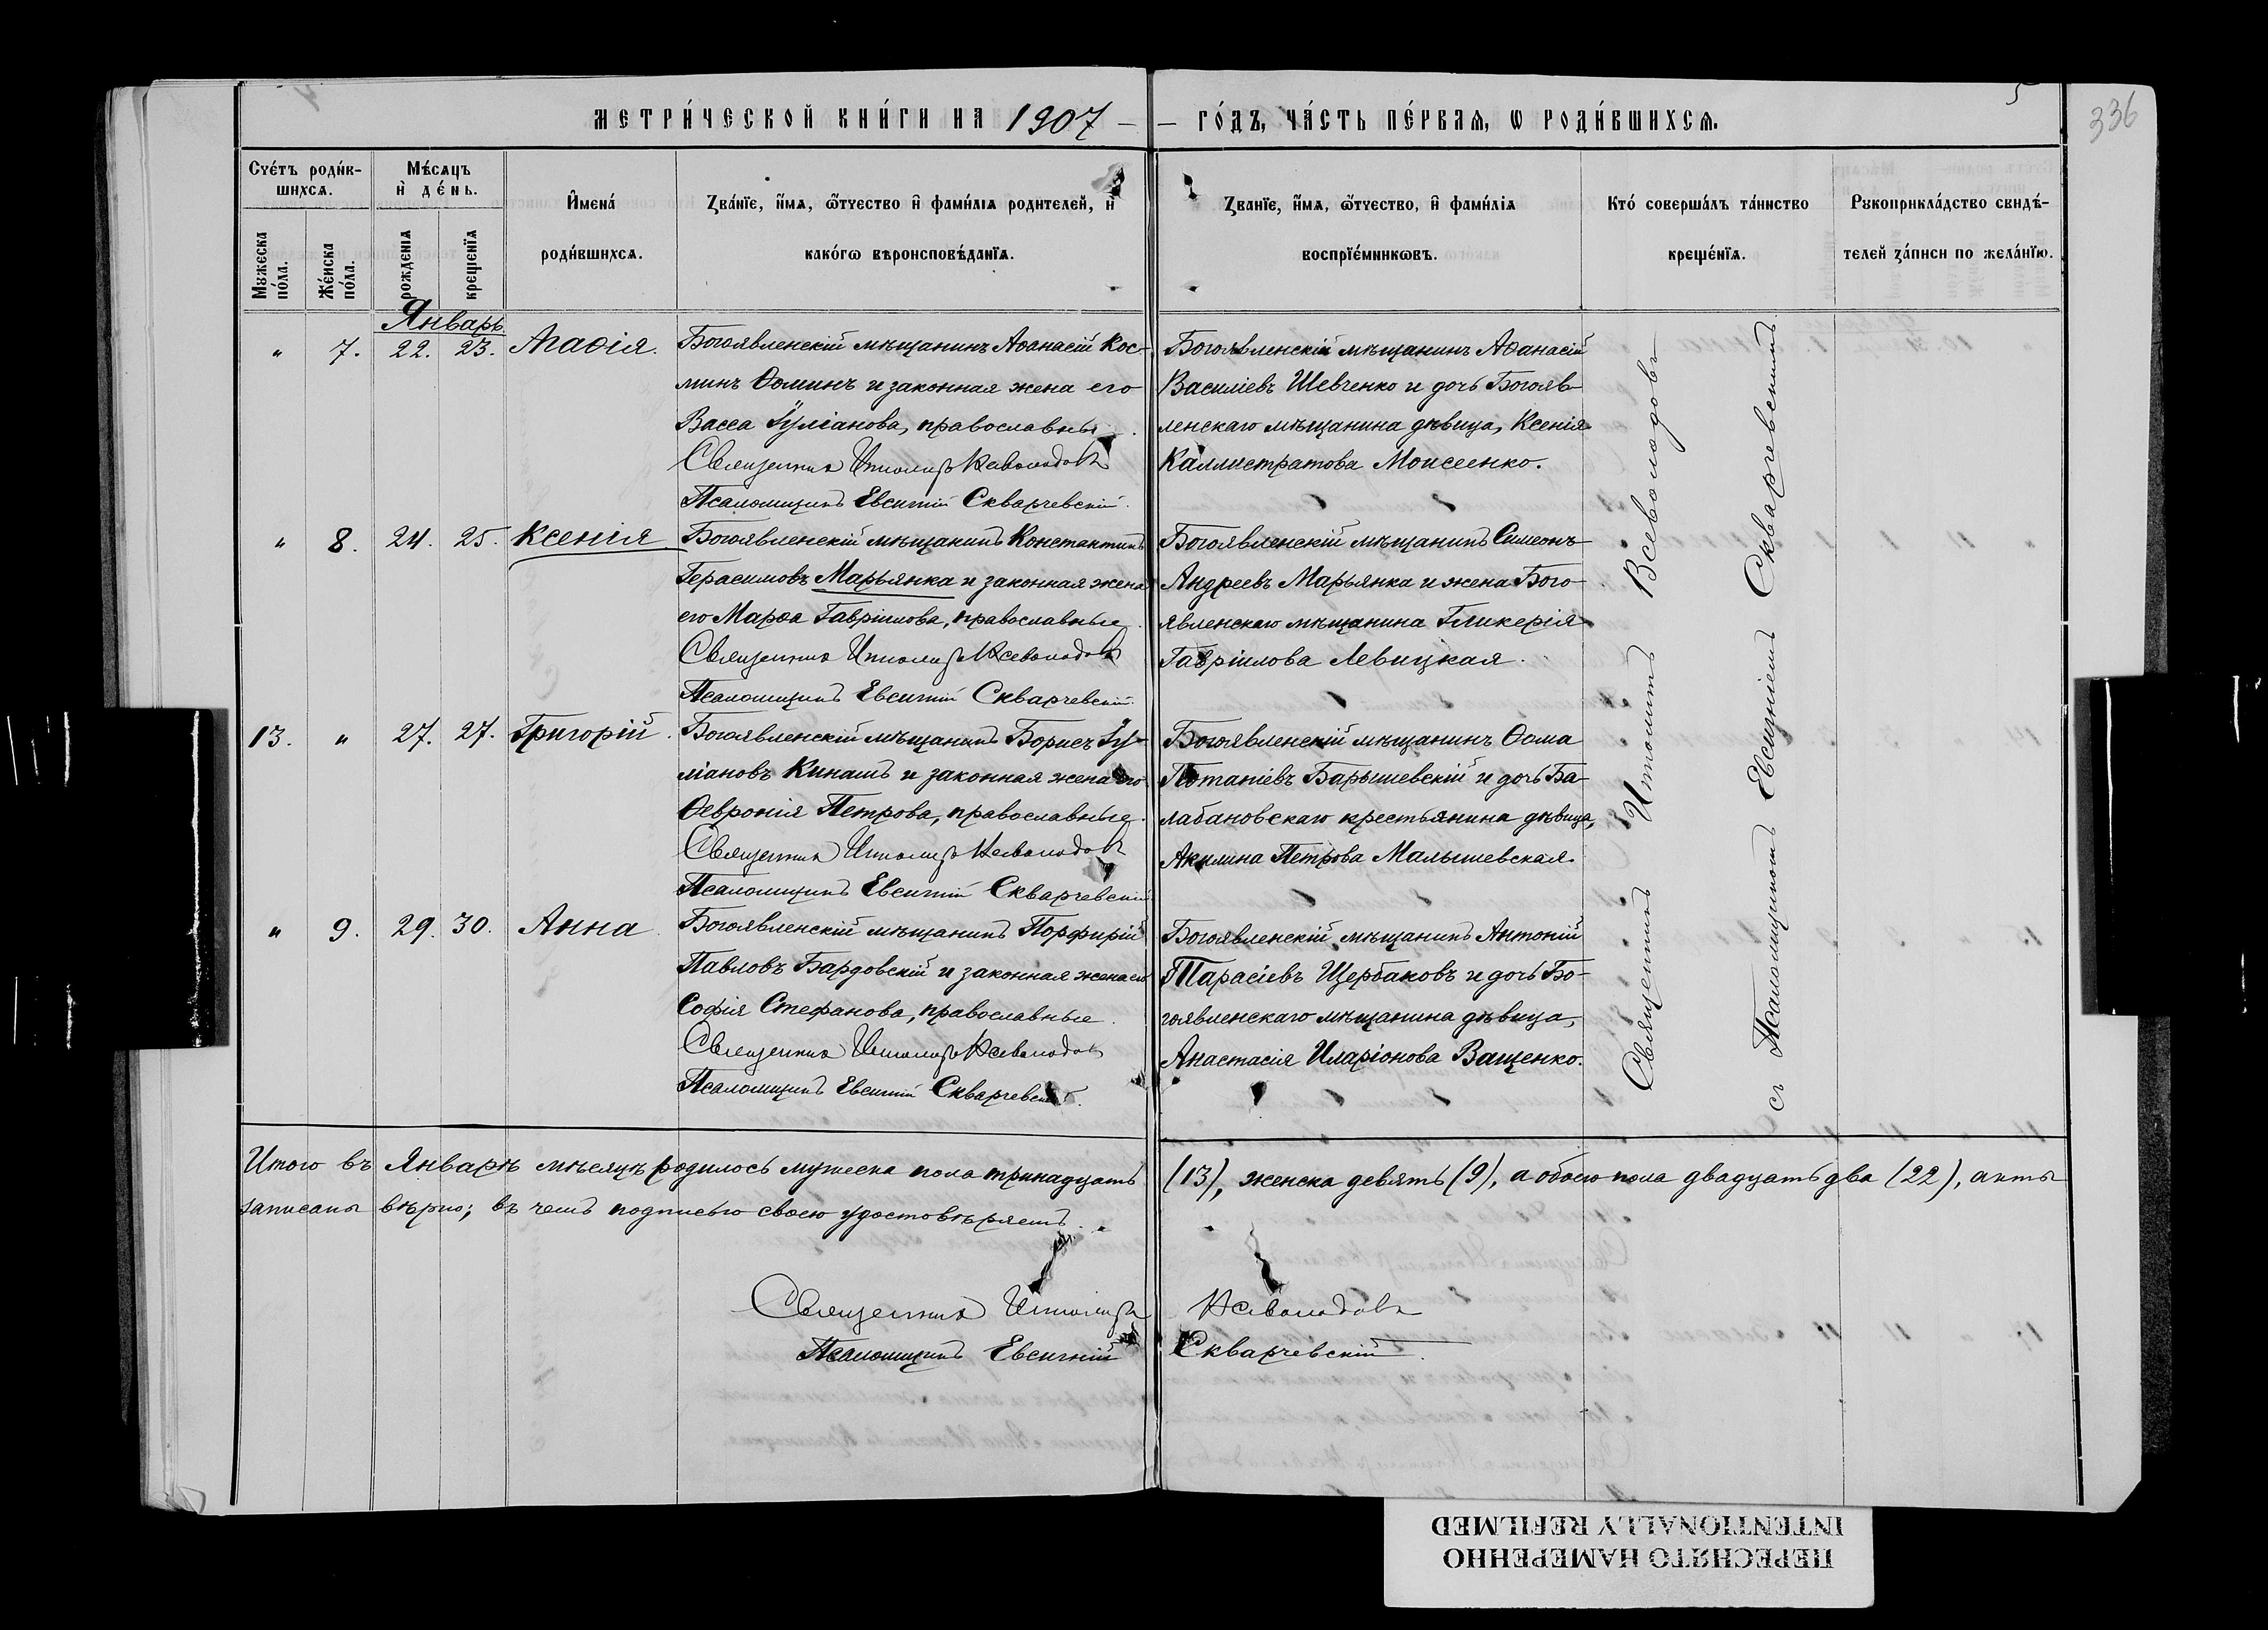 МЕТРИ́ЧЕСКОЙ КНИ́ГИ НА 1907 — — ГО́ДЪ, ЧА́СТЬ ПЕ́РВАѦ, Ѡ РОДИ́ВШИХСѦ.
5
336
Счéтъ роди́в-
шихсѧ.
Мужеска
по́ла.
Же́нска
по́ла.
Мѣ́сѧцъ
и҆ де́нь.
рожденїѧ
крещенїѧ
И҆мена́
роди́вшихсѧ.
Зва́нїе, и҆́мѧ, ѻ҆́тчество и҆ фами́лїѧ родителей, и҆
како́гѡ вѣроисповѣ́данїѧ.
Зва́нїе, и҆́мѧ, ѻ҆́тчество, и҆ фами́лїѧ
воспрїе́мникѡвъ.
Кто́ соверша́лъ та́инство
креще́нїѧ.
Рукоприкла́дство свидѣ́-
телей за́писи по жела́нїю.
Январь.
" 7. 22. 23. Агаѳія.
Богоявленскій мѣщанинъ Аѳанасій Кос-
минъ Ѳоминъ и законная жена его
Васса Іуліанова, православны
Священник Ипполит Всеволодов
Псаломщикъ Евсигній Скварчевскій.
Богоявленскій мѣщанинъ Аѳанасій
Василіевъ Шевченко и дочь Богояв-
ленскаго мѣщанина дѣвица, Ксенія
Каллистратова Моисеенко.
" 8. 24. 25. Ксенія
Богоявленскій мѣщанинъ Константинъ
Герасимовъ Марьянка и законная жена
его Марѳа Гавріилова, православные.
Священник Ипполит Всеволодов
Псаломщикъ Евсигній Скварчевскій.
Богоявленскій мѣщанинъ Симеонъ
Андреевъ Марьянка и жена Бого-
явленскаго мѣщанина Гликерія
Гавріилова Левицкая.
13. " 27. 27. Григорій.
Богоявленскій мѣщанинъ Борисъ Іу-
ліановъ Кинашъ и законная жена его
Ѳевронія Петрова, православные.
Священник Ипполит Всеволодов
Псаломщикъ Евсигній Скварчевскій
Богоявленскій мѣщанинъ Ѳома
Потапіевъ Барышевскій и дочь Ба-
лабановскаго крестьянина дѣвица,
Акилина Петрова Малышевская.
" 9. 29. 30. Анна.
Богоявленскій мѣщанинъ Порфирій
Павловъ Бардовскій и законная жена его
Софія Стефанова, православные.
Священник Ипполит Всеволодов
Псаломщикъ Евсигній Скварчевскій.
Богоявленскій мѣщанинъ Антоній
Тарасіевъ Щербаковъ и дочь Бо-
гоявленскаго мѣщанина дѣвица,
Анастасія Иларіонова Ващенко.
Священникъ Ипполитъ Всеволодовъ
съ Псаломщикомъ Евсигніемъ Скварчевскимъ.
Итого въ Январѣ мѣсяцѣ родилось мужеска пола тринадцать (13), женска девять (9), а обоего пола двадцать два (22), акты
записаны вѣрно; въ чемъ подписью своею удостовѣряемъ.
Священник Ипполит Всеволодов
Псаломщикъ Евсигній Скварчевскій.
ПЕРЕСНЯТО НАМЕРЕННО
INTENTIONALLY REFILMED